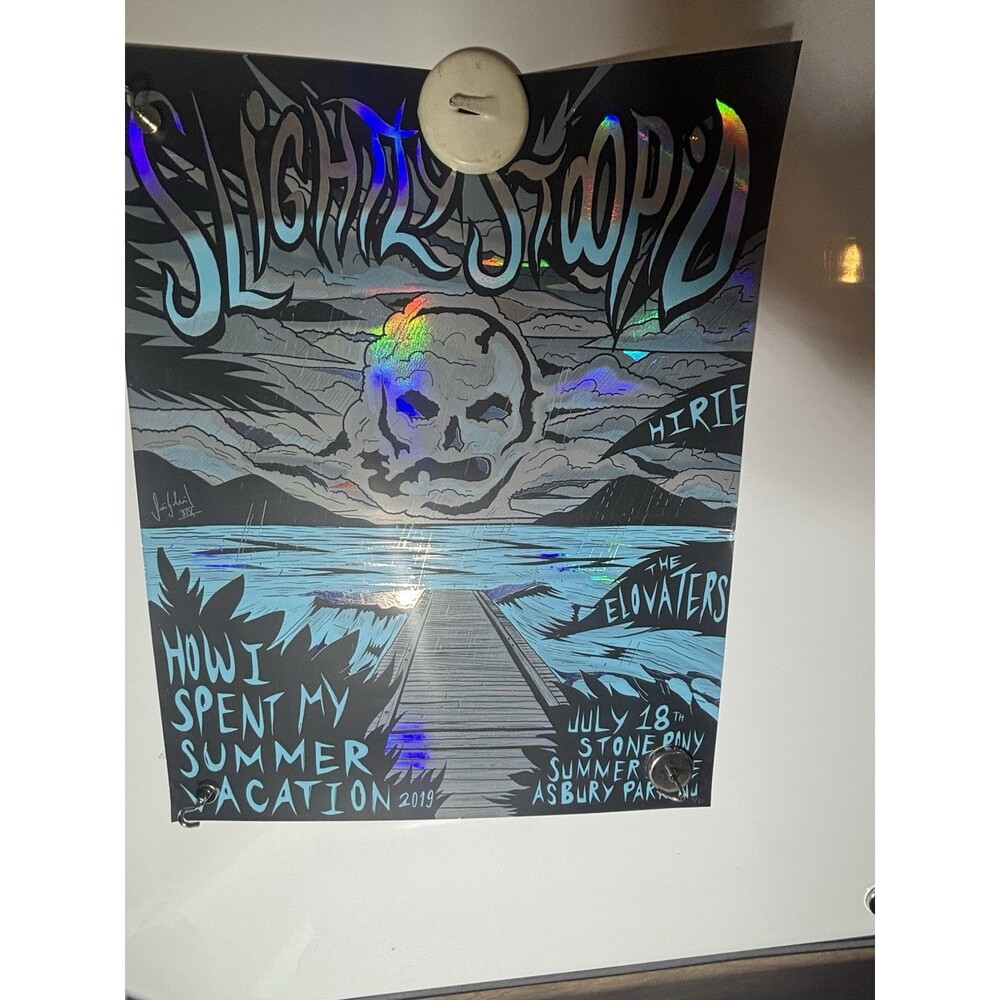 SLIGHTLY STOOPID
HIRIE
THE
ELOVATERS
HOW I
SPENT MY
SUMMER
VACATION 2019
JULY 18TH
STONE PONY
SUMMER
ASBURY